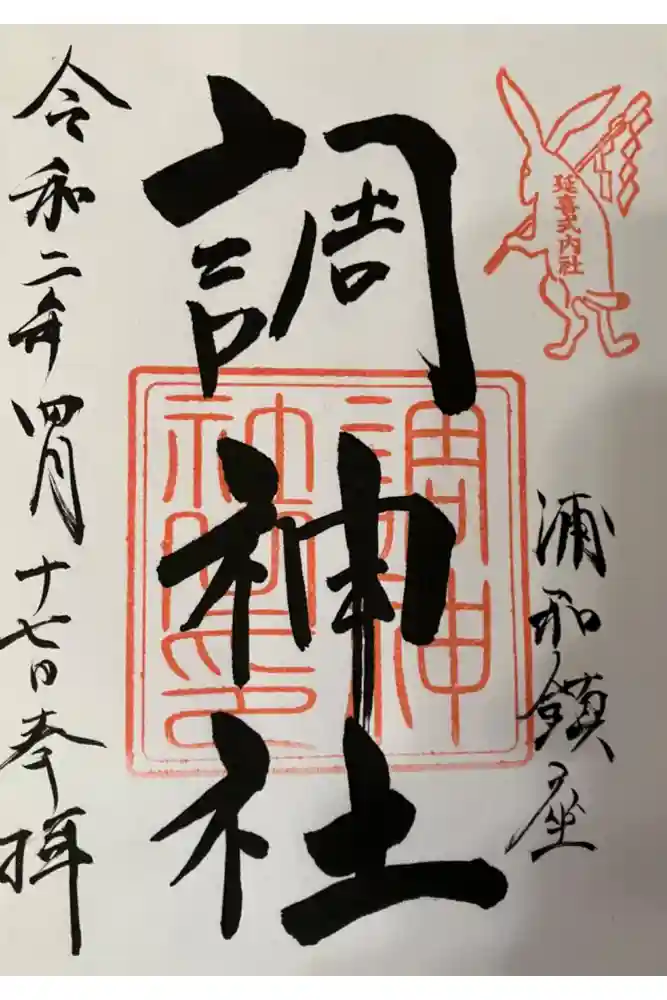 延喜式内社
浦和鎮座
調神社
調神社寶印
令和二年四月十七日奉拝